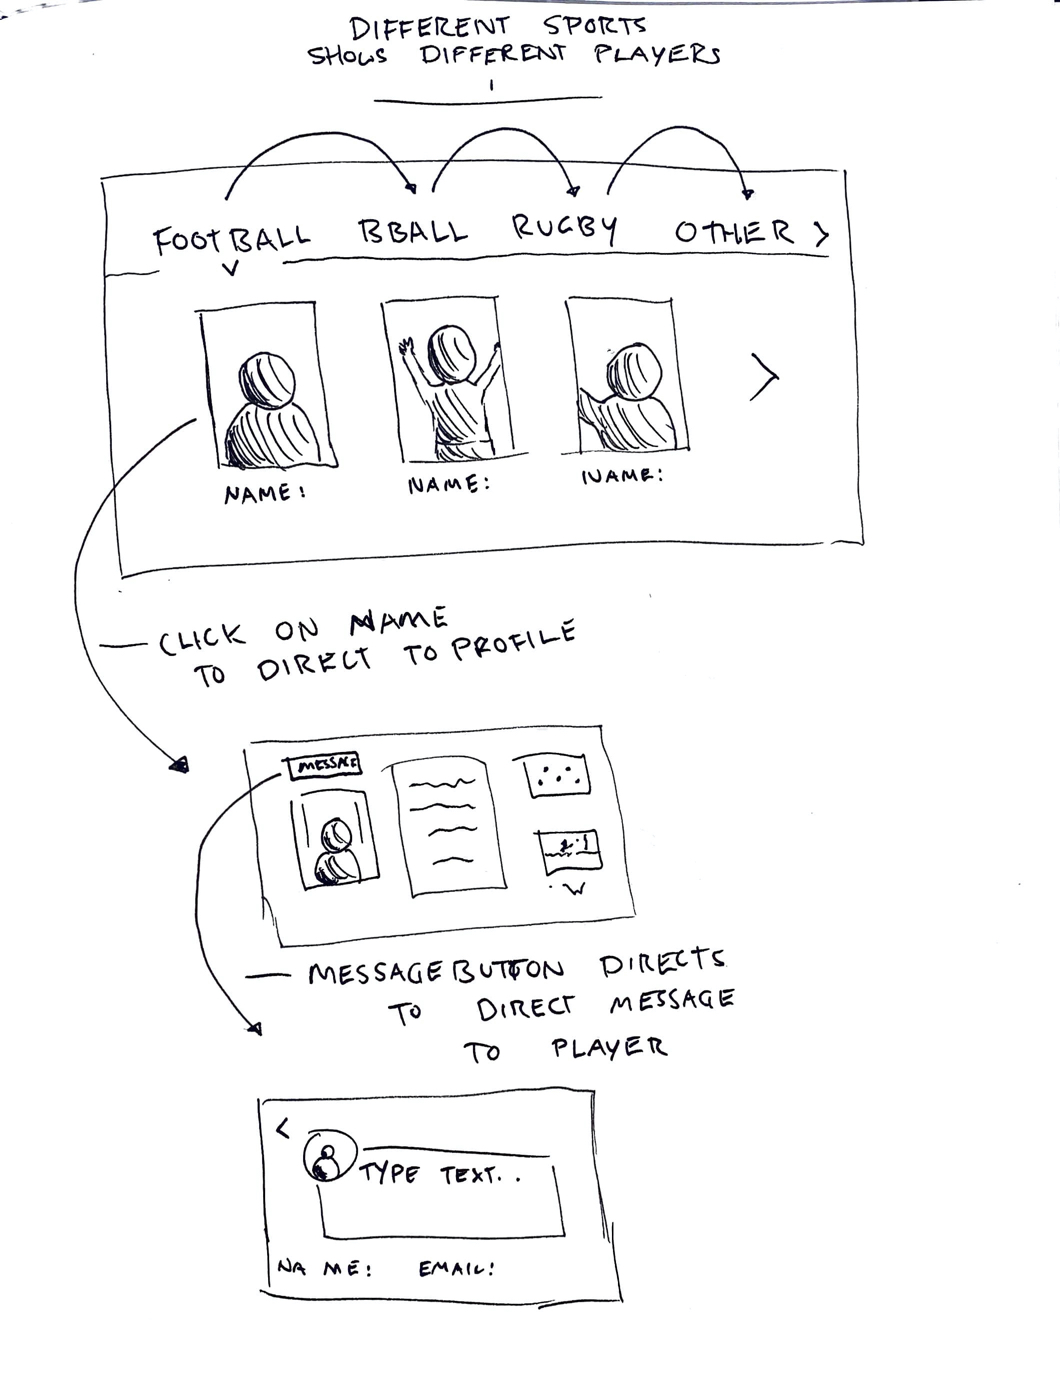 DIFFERENT SPORTS
SHOWS DIFFERENT PLAYERS
FOOTBALL BBALL RUGBY OTHER >
NAME: NAME: NAME:
— CLICK ON NAME
TO DIRECT TO PROFILE
MESSAGE
— MESSAGE BUTTON DIRECTS
TO DIRECT MESSAGE
TO PLAYER
<
TYPE TEXT..
NAME: EMAIL: